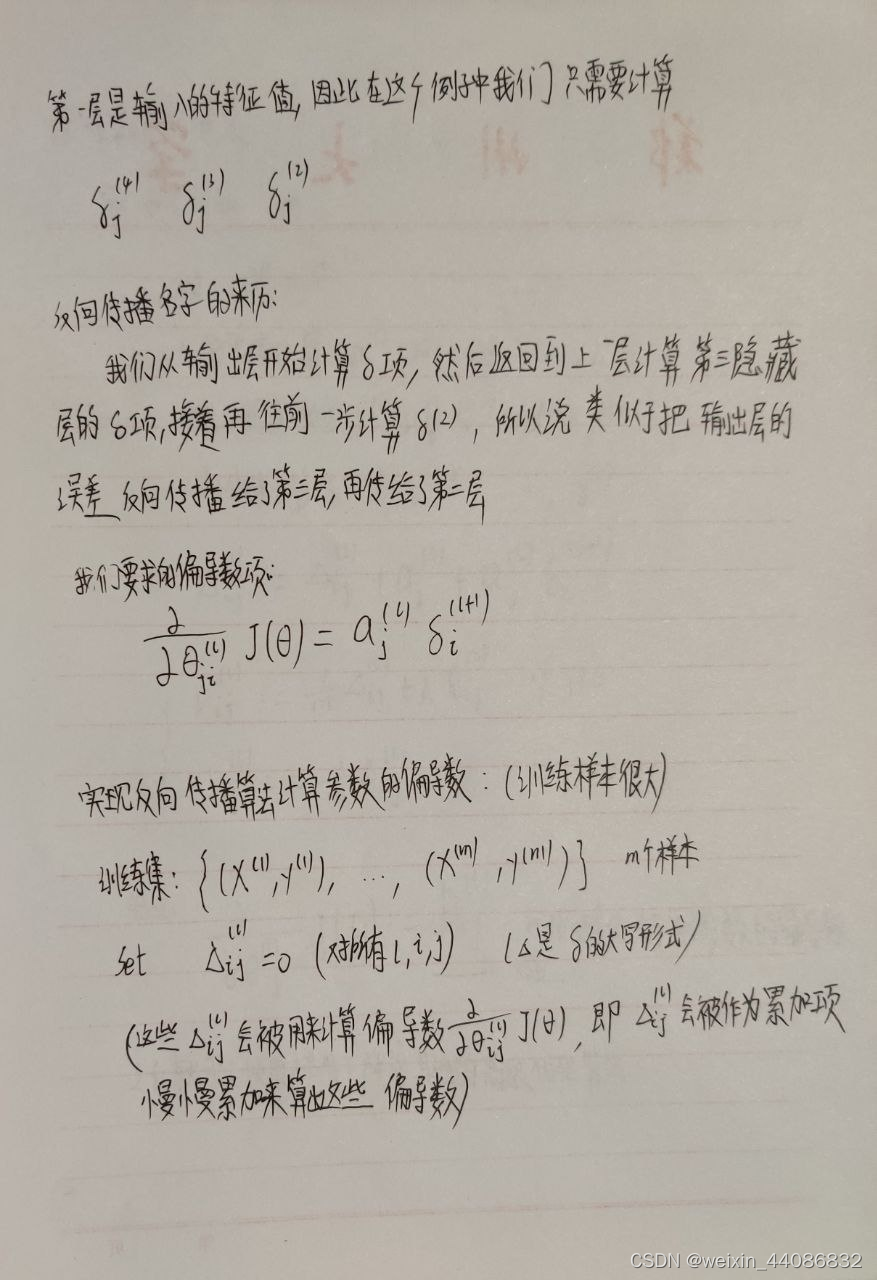 第一层是输入的特征值,因此在这个例子中我们只需要计算
δj^(4) δj^(3) δj^(2)
反向传播名字的来历:
我们从输出层开始计算δ项,然后返回到上一层计算第三隐藏
层的δ项,接着再往前一步计算δ(2),所以说类似于把输出层的
误差反向传播给了第三层,再传给了第二层
我们要求的偏导数项:
∂/∂θji^(l) J(θ) = aj^(l) δi^(l+1)
实现反向传播算法计算参数的偏导数:(训练样本很大)
训练集:{(X^(1),y^(1)), ..., (X^(m),y^(m))} m个样本
set Δij^(l)=0 (对所有l,i,j) (Δ是δ的大写形式)
(这些Δij^(l)会被用来计算偏导数∂/∂θij^(l) J(θ),即Δij^(l)会被作为累加项
慢慢累加来算出这些偏导数)
CSDN @weixin_44086832